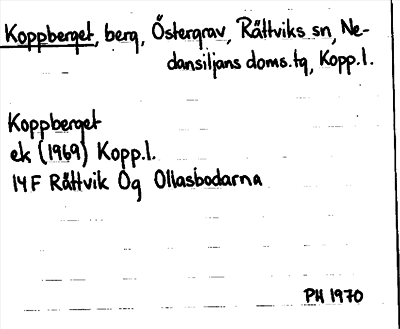 Koppberget, berg, Östergrav, Rättviks sn, Ne-
dansiljans doms.tg, Kopp.l.
Koppberget
ek (1969) Kopp.l.
14F Rättvik Og Ollasbodarna
PH 1970